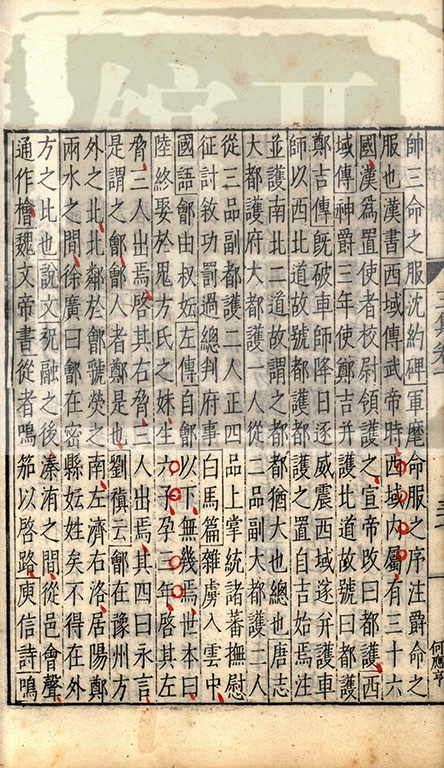 帥三命之服沈約碑軍麾命服之序注爵命之
服也漢書西域傳武帝時西域內屬有三十六
國漢爲置使者校尉領護之宣帝改曰都護西
域傳神爵三年使鄭吉并護北道故號曰都護
鄭吉傳旣破車師降日逐威震西域遂并護車
師以西北道故號都護都護之置自吉始焉注
並護南北二道故謂之都都猶大也總也唐志
大都護府大都護一人從二品副大都護二人
從三品副都護二人正四品上掌統諸蕃撫慰
征討敘功罰過總判府事白馬篇雜虜入雲中
國語鄶由叔妘左傳自鄶以下無幾焉世本曰
陸終娶於鬼方氏之妹生六子孕三年啓其左
脅三人出焉啓其右脅三人出焉其四曰永言
是謂之鄶鄶人者鄭是也劉稹云鄶在豫州方
外之北北鄰於鄶虢熒之南左濟右洛居陽鄭
兩水之間徐廣曰鄶在密縣妘姓矣不得在外
方之北也說文祝融之後溱洧之間從邑會聲
通作檜魏文帝書從者鳴笳以啓路庾信詩鳴